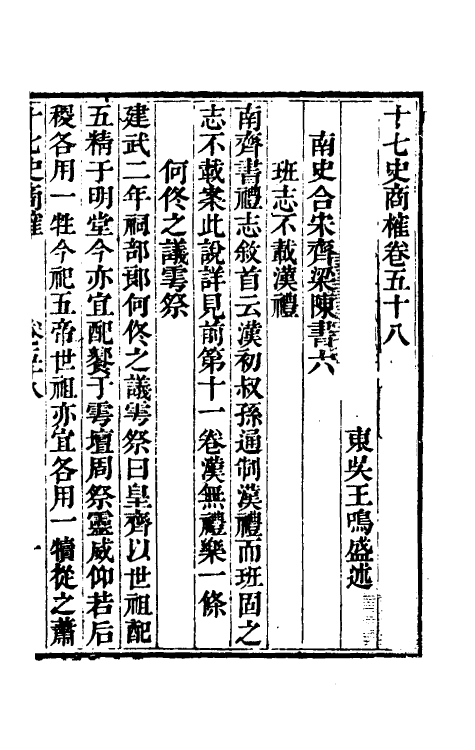 十七史商榷卷五十八
東吳王鳴盛述
南史合宋齊梁陳書六
班志不載漢禮
南齊書禮志敘首云漢初叔孫通制漢禮而班固之
志不載案此說詳見前第十一卷漢無禮樂一條
何佟之議雩祭
建武二年祠部郎何佟之議雩祭曰皇齊以世祖配
五精于明堂今亦宜配饗于雩壇周祭靈威仰若后
稷各用一牲今祀五帝世祖亦宜各用一犢從之蕭
十七史商榷 卷五十八 一